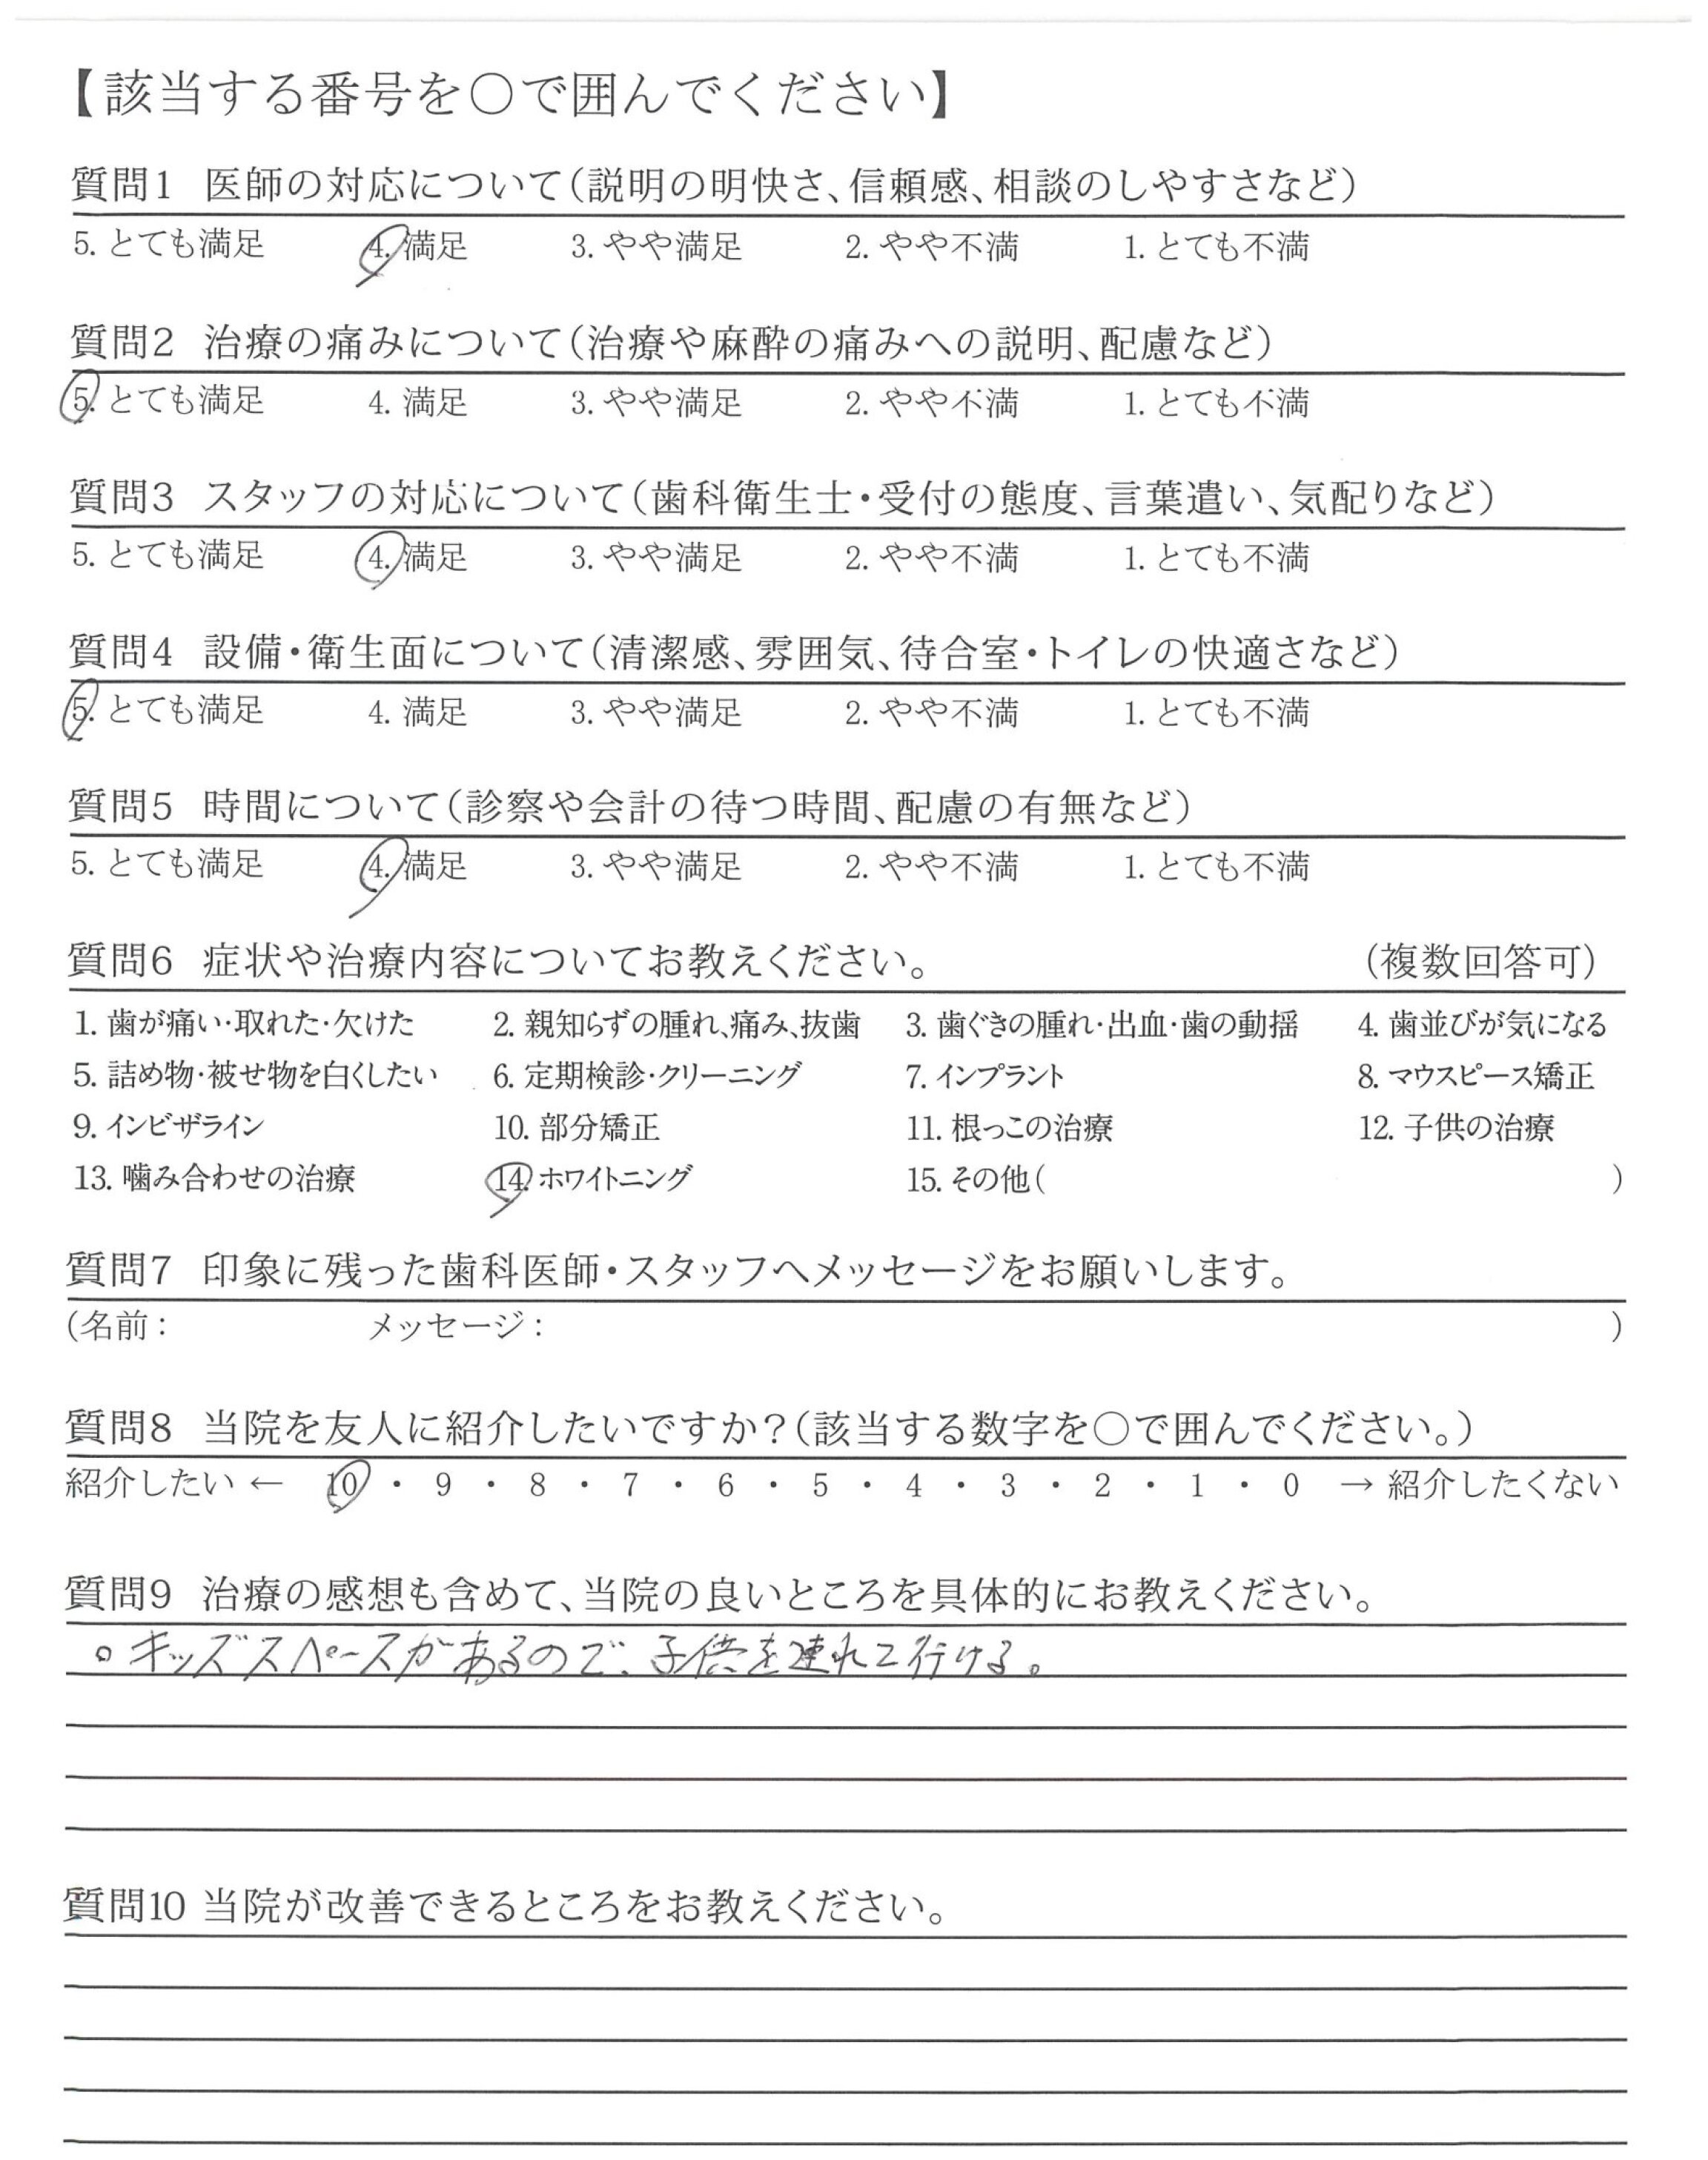 【該当する番号を○で囲んでください】
質問1 医師の対応について(説明の明快さ、信頼感、相談のしやすさなど)
5. とても満足 4. 満足 3. やや満足 2. やや不満 1. とても不満
質問2 治療の痛みについて(治療や麻酔の痛みへの説明、配慮など)
5. とても満足 4. 満足 3. やや満足 2. やや不満 1. とても不満
質問3 スタッフの対応について(歯科衛生士・受付の態度、言葉遣い、気配りなど)
5. とても満足 4. 満足 3. やや満足 2. やや不満 1. とても不満
質問4 設備・衛生面について(清潔感、雰囲気、待合室・トイレの快適さなど)
5. とても満足 4. 満足 3. やや満足 2. やや不満 1. とても不満
質問5 時間について(診察や会計の待つ時間、配慮の有無など)
5. とても満足 4. 満足 3. やや満足 2. やや不満 1. とても不満
質問6 症状や治療内容についてお教えください。 (複数回答可)
1. 歯が痛い・取れた・欠けた 2. 親知らずの腫れ、痛み、抜歯 3. 歯ぐきの腫れ・出血・歯の動揺 4. 歯並びが気になる
5. 詰め物・被せ物を白くしたい 6. 定期検診・クリーニング 7. インプラント 8. マウスピース矯正
9. インビザライン 10. 部分矯正 11. 根っこの治療 12. 子供の治療
13. 噛み合わせの治療 14. ホワイトニング 15. その他( )
質問7 印象に残った歯科医師・スタッフへメッセージをお願いします。
(名前: メッセージ: )
質問8 当院を友人に紹介したいですか?(該当する数字を○で囲んでください。)
紹介したい ← 10 ・ 9 ・ 8 ・ 7 ・ 6 ・ 5 ・ 4 ・ 3 ・ 2 ・ 1 ・ 0 → 紹介したくない
質問9 治療の感想も含めて、当院の良いところを具体的にお教えください。
。キッズスペースがあるので、子供を連れて行ける。
質問10 当院が改善できるところをお教えください。